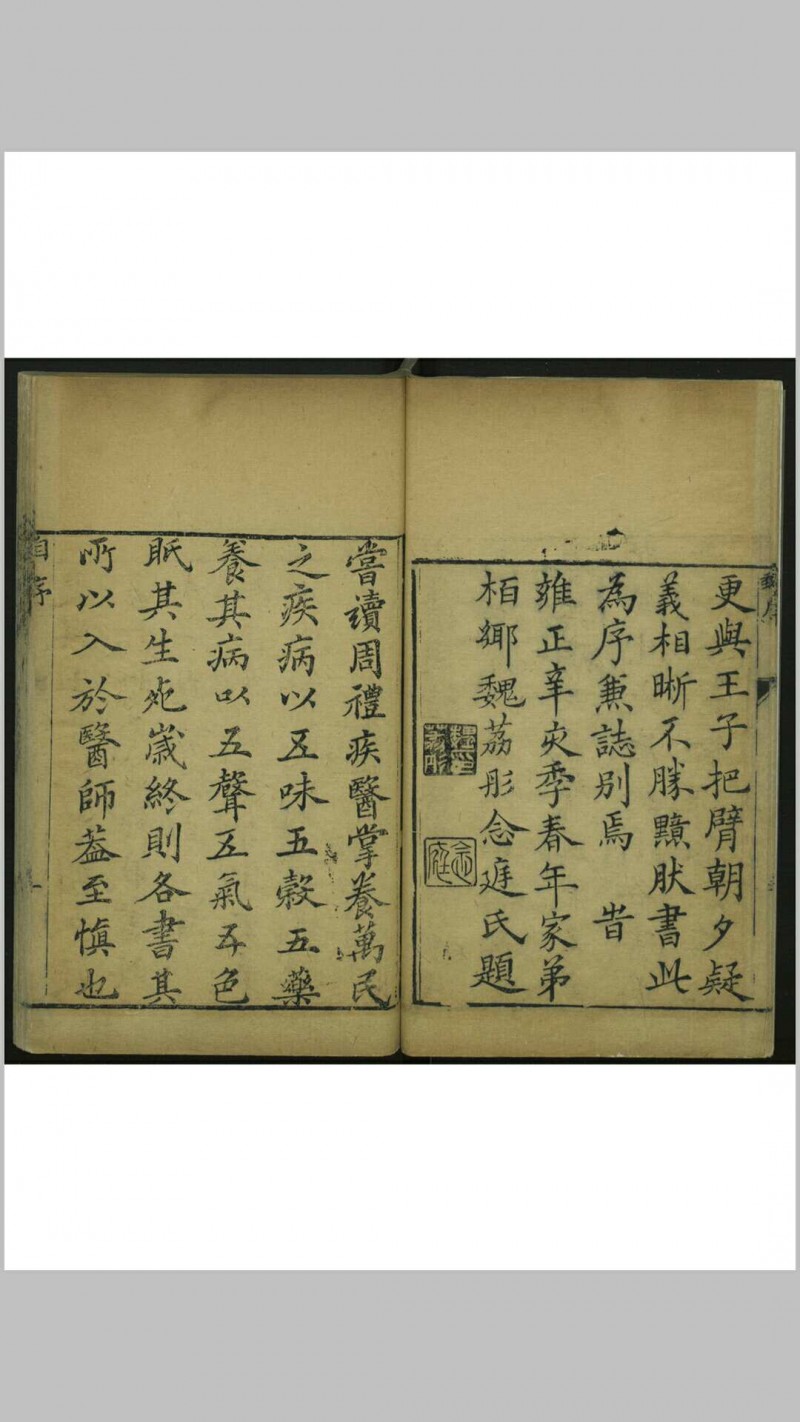 更與王子把臂朝夕疑
義相晣不勝黯肰書此
為序兼誌別焉 旹
雍正辛亥季春年家弟
栢鄉魏荔彤念庭氏題
念庭
嘗讀周禮疾醫掌養萬民
之疾病以五味五榖五藥
養其病以五聲五氣五色
眡其生死歲終則各書其
所以入於醫師葢至慎也
自序